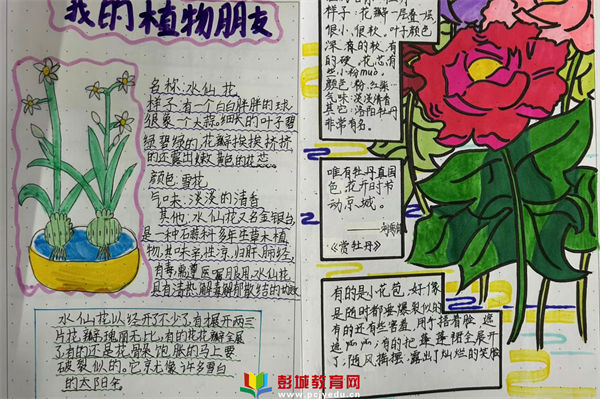 我的植物朋友
名称:水仙花
样子:有一个白白胖胖的球
很象一个大蒜,细长的叶子碧
绿碧绿的花瓣挨挨挤挤
的还露出嫩黄色的花蕊
颜色:雪花
气味:淡淡的清香
其他:水仙花又名金银台
是一种石蒜科多年生草本植
物,其味辛性凉,归肺
有毒,需遵医嘱服用,水仙花
具有清热解毒
水仙花似经开了不少了,有展开两三
片花瓣,瑰丽无比,有的花花瓣全展
了,有的还是花骨朵,饱胀的马上要
破裂似的。它京尤像许多雪白
的太阳伞
样子:花瓣一层叠一层
很小,很秋,叶子颜色
深,有的秋,有
的硬,花芯有
些小粉muò。
颜色:粉.红.紫
气味:淡淡清香
其它:洛阳牡丹
非常有名。
唯有牡丹真国
色,花开时节
动京城。
——刘禹锡
《赏牡丹》
有的是小花苞,好像
是随时都要爆裂似的
有的还有些害羞,用手捂着脸,遮
遮掩掩,有的把蓬蓬裙全展开
了,随风舞摆,露出了灿烂的笑脸
彭城教育网
www.pcjyedu.cn